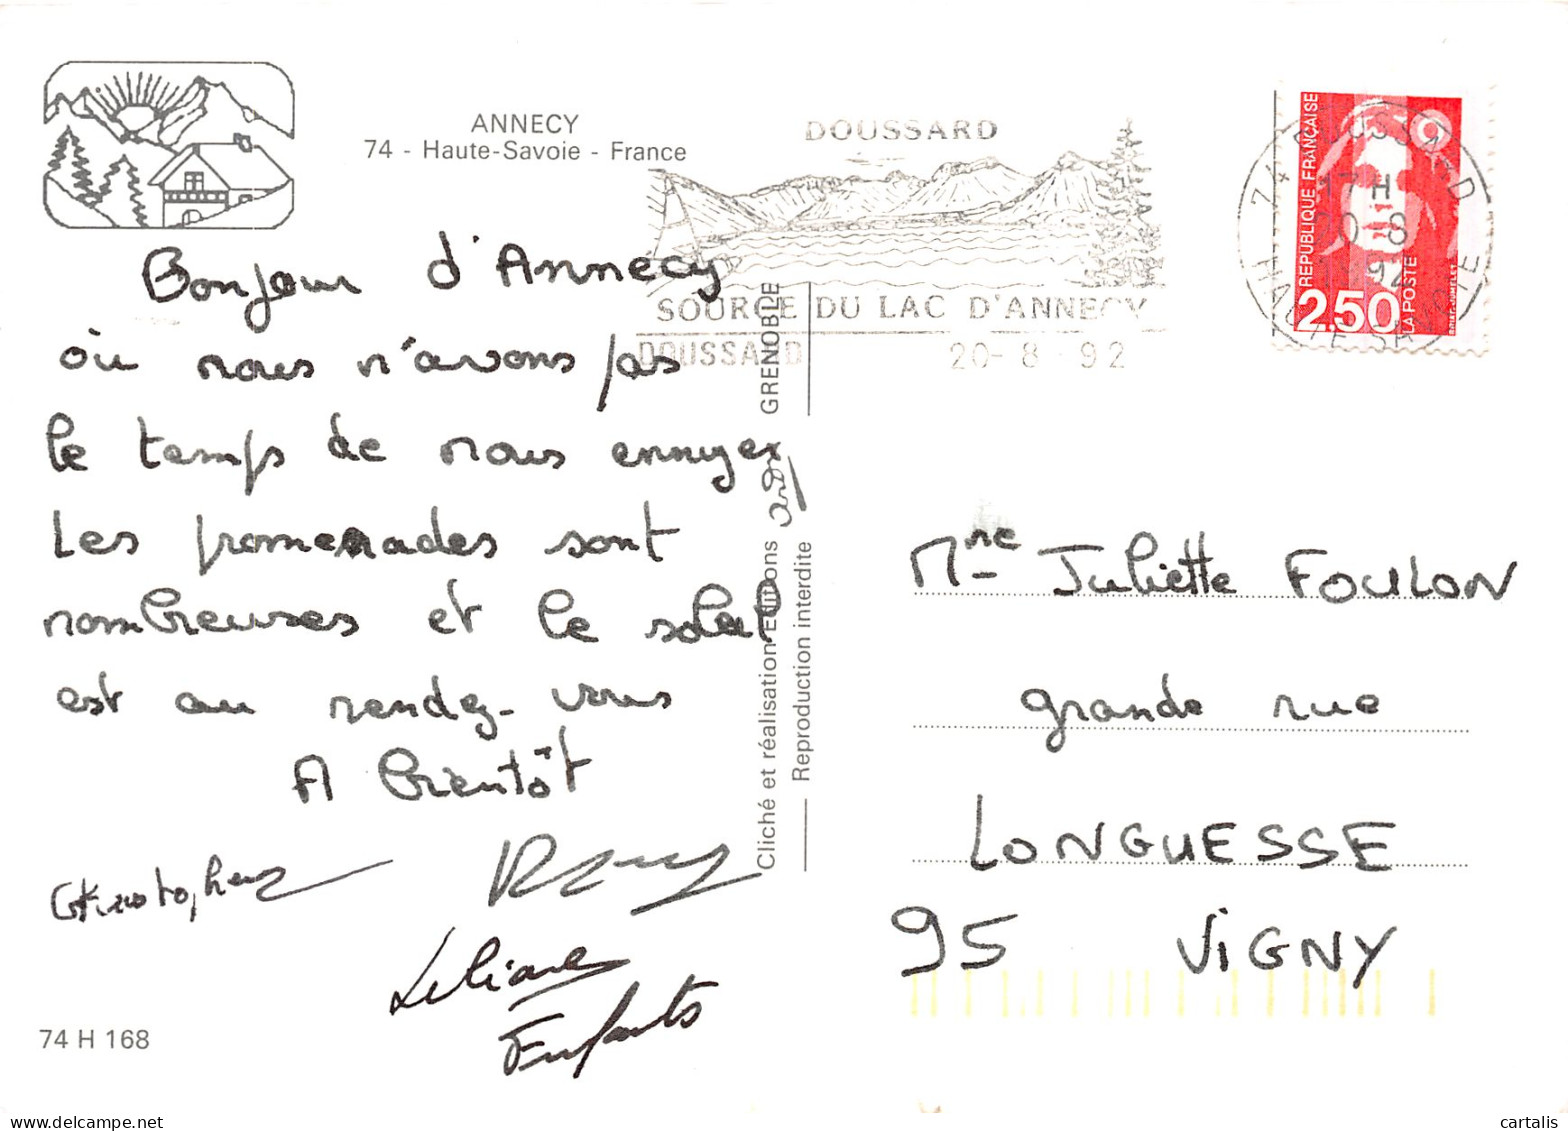 ANNECY
74 - Haute-Savoie - France
Bonjour d'Annecy
où nous n'avons pas
le temps de nous ennuyer
Les promenades sont
nombreuses et le soleil
est au rendez-vous
A bientôt
Christophe
Liliane
Enfants
74 H 168
Cliché et réalisation Editions GRENOBLE
Reproduction interdite
DOUSSARD
SOURCE DU LAC D'ANNECY
DOUSSARD 20-8-92
74 DOUSSARD
17 H
20-8
HAUTE-SAVOIE
REPUBLIQUE FRANÇAISE
2,50
LA POSTE
Mme Juliette FOULON
grande rue
LONGUESSE
95 VIGNY
cartalis